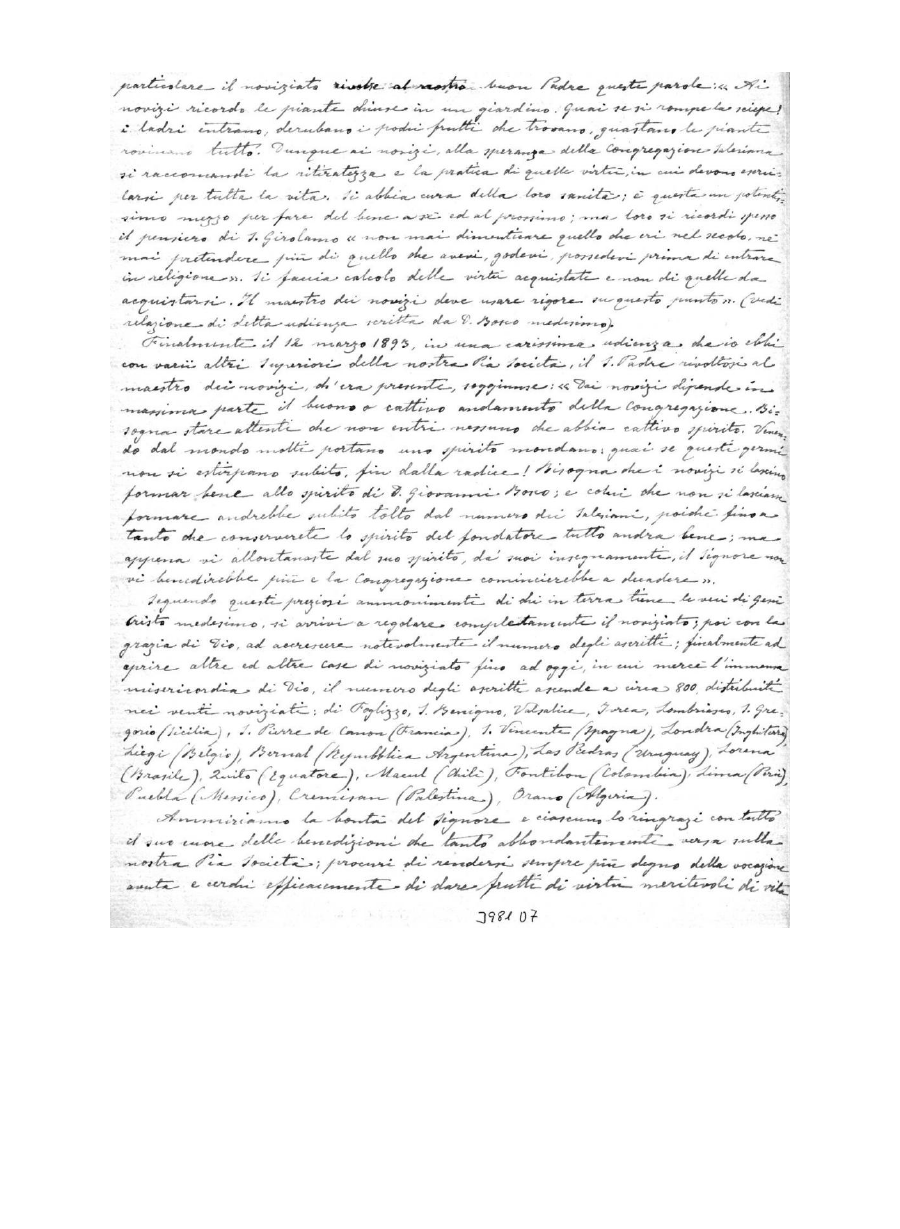 particolare il noviziato rivolse al nostro buon Padre queste parole: « Ai
novizi ricordo le piante chiuse in un giardino. Guai se si rompe la sciepe!
i ladri entrano, derubano i pochi frutti che trovano, guastano le piante
rovinano tutto. Dunque ai novizi, alla speranza della Congregazione Salesiana
si raccomandi la ritiratezza e la pratica di quelle virtù, in cui devono eserci-
tarsi per tutta la vita. Si abbia cura della loro sanità; è questa un potentis-
simo mezzo per fare del bene a sè ed al prossimo; ma loro si ricordi spesso
il pensiero di S. Girolamo « non mai dimenticare quello che eri nel secolo, nè
mai pretendere più di quello che avevi, godevi, possedevi prima di entrare
in religione ». Si faccia calcolo delle virtù acquistate e non di quelle da
acquistarsi. Il maestro dei novizi deve usare rigore su questo punto ». (Vedi
relazione di detta udienza scritta da D. Bosco medesimo).
Finalmente il 12 marzo 1893, in una carissima udienza che io ebbi
con varii altri Superiori della nostra Pia Società, il S. Padre rivoltosi al
maestro dei novizi, ch'era presente, soggiunse: « Dai novizi dipende in
massima parte il buono o cattivo andamento della Congregazione. Bi-
sogna stare attenti che non entri nessuno che abbia cattivo spirito. Venen-
do dal mondo molti portano uno spirito mondano; guai se questi germi
non si estirpano subito, fin dalla radice! Bisogna che i novizi si lascino
formar bene allo spirito di D. Giovanni Bosco; e colui che non si lasciasse
formare andrebbe subito tolto dal numero dei Salesiani, poichè fino a
tanto che conserverete lo spirito del fondatore tutto andrà bene; ma
appena vi allontanaste dal suo spirito, de' suoi insegnamenti, il Signore non
vi benedirebbe più e la Congregazione comincierebbe a decadere ».
Seguendo questi preziosi ammonimenti di chi in terra tiene le veci di Gesù
Cristo medesimo, si arrivò a regolare completamente il noviziato; poi con la
grazia di Dio, ad accrescere notevolmente il numero degli ascritti; finalmente ad
aprire altre ed altre case di noviziato fino ad oggi, in cui mercè l'immensa
misericordia di Dio, il numero degli ascritti ascende a circa 800, distribuiti
nei venti noviziati: di Foglizzo, S. Benigno, Valsalice, Ivrea, Lombriasco, S. Gre-
gorio (Sicilia), S. Pierre de Canon (Francia), S. Vincente (Spagna), Londra (Inghilterra),
Liegi (Belgio), Bernal (Repubblica Argentina), Las Piedras (Uruguay), Lorena
(Brasile), Quito (Equatore), Macul (Chilì), Fontibon (Colombia), Lima (Perù),
Puebla (Messico), Cremisan (Palestina), Orano (Algeria).
Ammiriamo la bontà del Signore e ciascuno lo ringrazi con tutto
il suo cuore delle benedizioni che tanto abbondantemente versa sulla
nostra Pia Società; procuri di rendersi sempre più degno della vocazione
avuta e cerchi efficacemente di dare frutti di virtù meritevoli di vita
J981 07